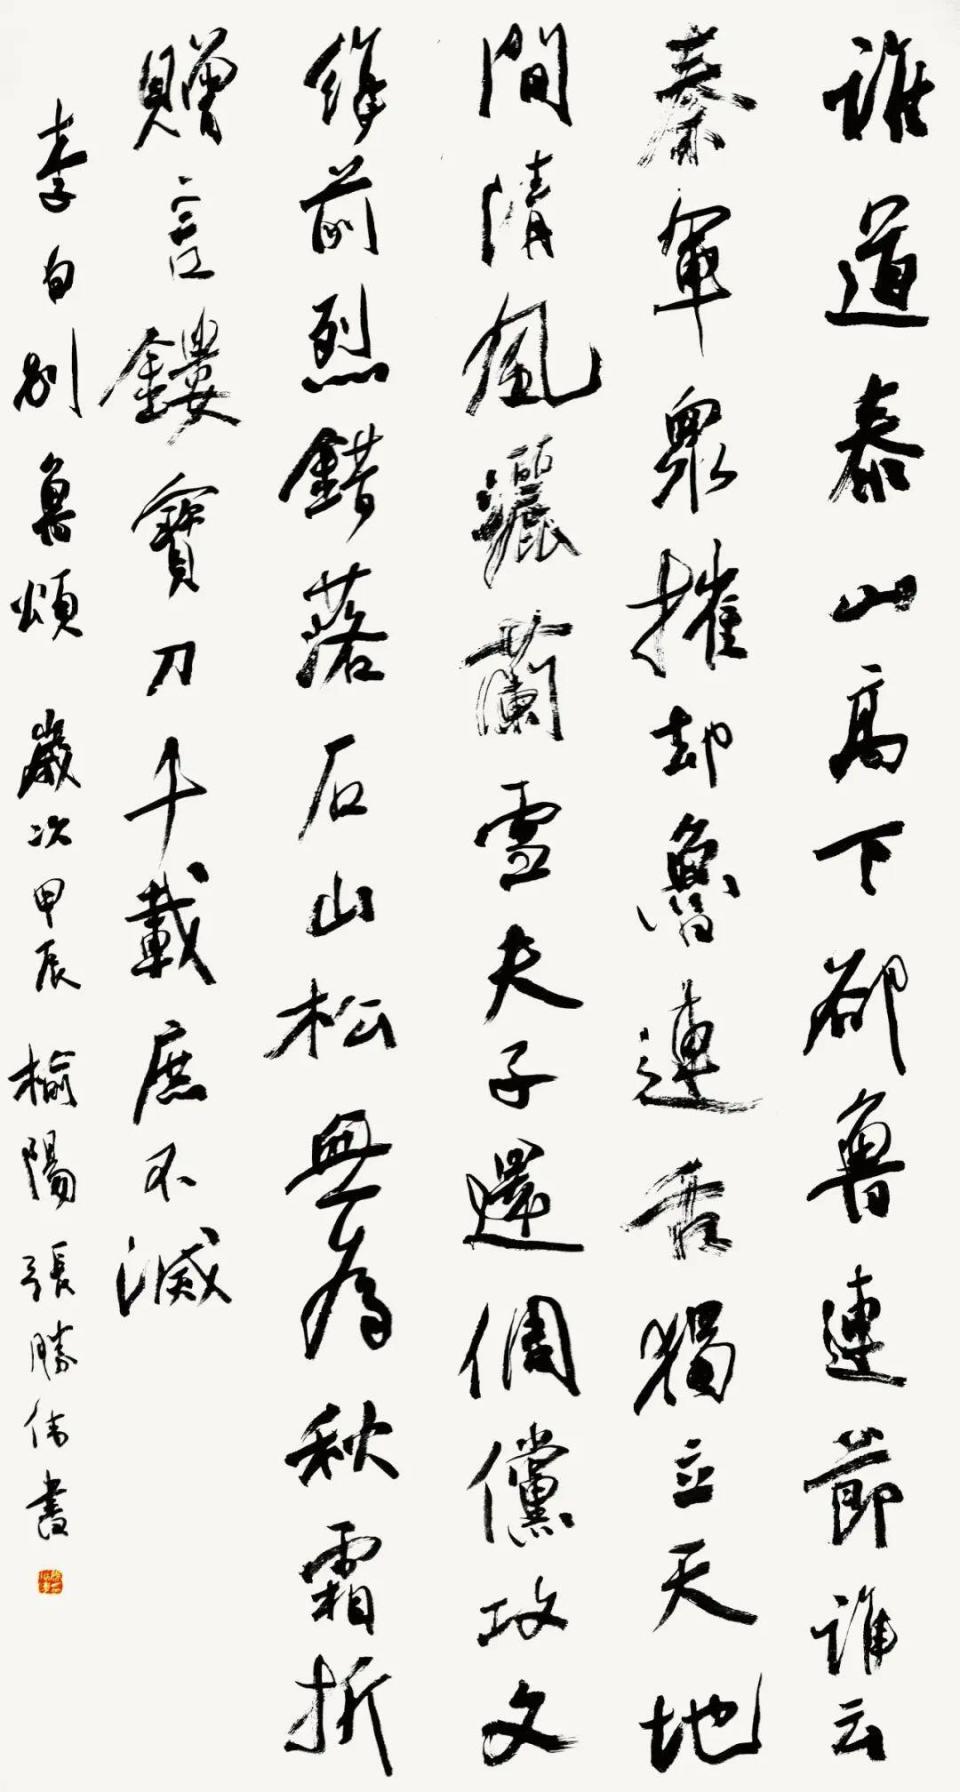 誰道泰山高下卻魯連節誰云
秦軍眾摧却魯連舌獨立天地
間清風灑蘭雪夫子還倜儻攻文
繼前烈錯落石山松無為秋霜折
贈言鏤寶刀千載庶不滅
李白別魯頌 歲次甲辰 榆陽張勝偉書